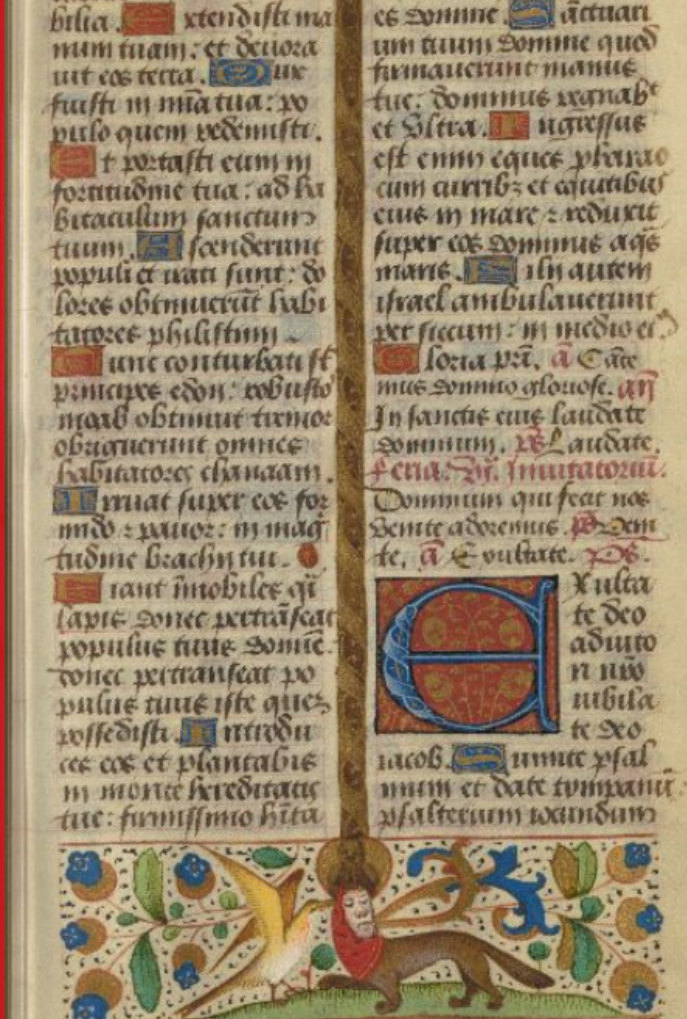 bilia. Extendisti ma
num tuam: et devora
vit eos terra. Dux
fuisti in mīa tua: po
pulo quem redemisti.
Et portasti eum in
fortitudine tua: ad ha
bitaculum sanctum
tuum. Ascenderunt
populi et irati sunt: do
lores obtinuerūt habi
tatores philistiim
Tunc conturbati sūt
principes edon: robusto
moab obtinuit tremor
obriguerunt omnes
habitatores chanaam.
Irruat super eos for
mido & pavor: in mag
tudine brachii tui.
Fiant īmobiles qi
lapis donec pertrāseat
populus tuus domīe:
donec pertranseat po
pulus tuus iste quez
possedisti. Introdu
ces eos et plantabis
in monte hereditatis
tue: firmissimo hīta
es domine. Sāctuari
um tuum domine quod
firmaverunt manus
tue: dominus regnabt
et Vltra. Ingressus
est enim eques pharao
cum curribz et equitibus
eius in mare & reduxit
super eos dominus aqs
maris. Filii autem
israel ambulaverunt
per siccum: in medio ei.
Gloria pri. a Cāte
mus domino gloriose. an
In sanctis eius laudate
dominum. ps Laudate.
feria. Vi. Invitatoriū.
Dominum qui fecit nos
venite adoremus. ps Veni
te. a Exultate. Ps.
Exulta
te deo
adiuto
ri nro
iubila
te deo
iacob. Sumite psal
mum et date tympanū:
psalterium iocundum